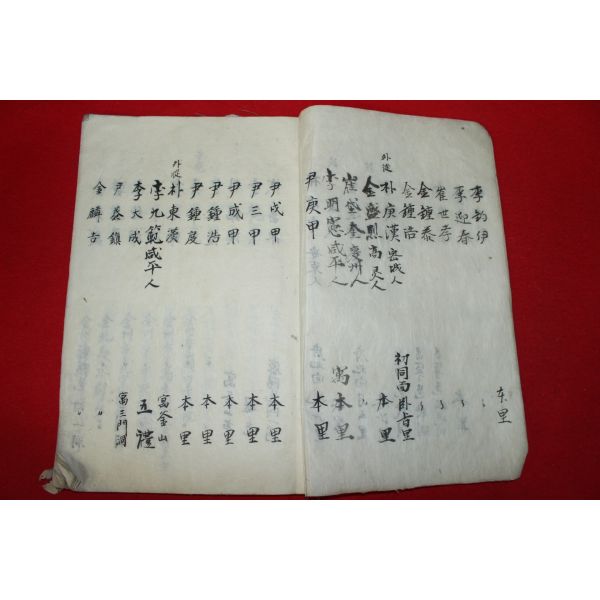 李鈞伊 本里
李迎春 〃
崔世孝 〃
金鐘泰 〃
金鐘吉 〃
外從 朴庚漢 密城人 初同面臥旨里
金盛烈 高灵人 本里
崔 奎 慶州人
李明憲 咸平人 寓本里
尹庚甲 本里
尹戊甲 本里
尹三甲 本里
尹成甲 本里
尹鍾浩 本里
尹鍾度 本里
外從 朴東漢 寓釜山
李九範 咸平人 五禮
李大成 寓三門洞
尹基鎭 〃
金麟吉 〃